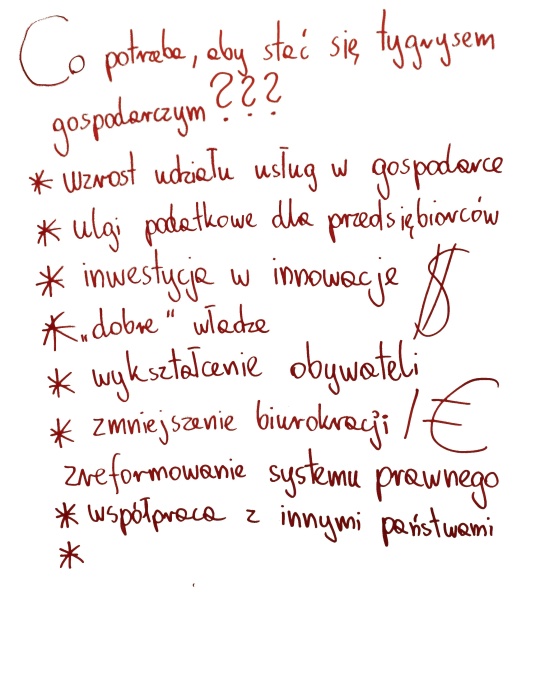 Co potrzeba, aby stać się tygrysem
gospodarczym ???
* wzrost udziału usług w gospodarce
* ulgi podatkowe dla przedsiębiorców
* inwestycja w innowacje $
* „dobre“ władze
* wykształcenie obywateli
* zmniejszenie biurokracji / €
zreformowanie systemu prawnego
* współpraca z innymi państwami
*